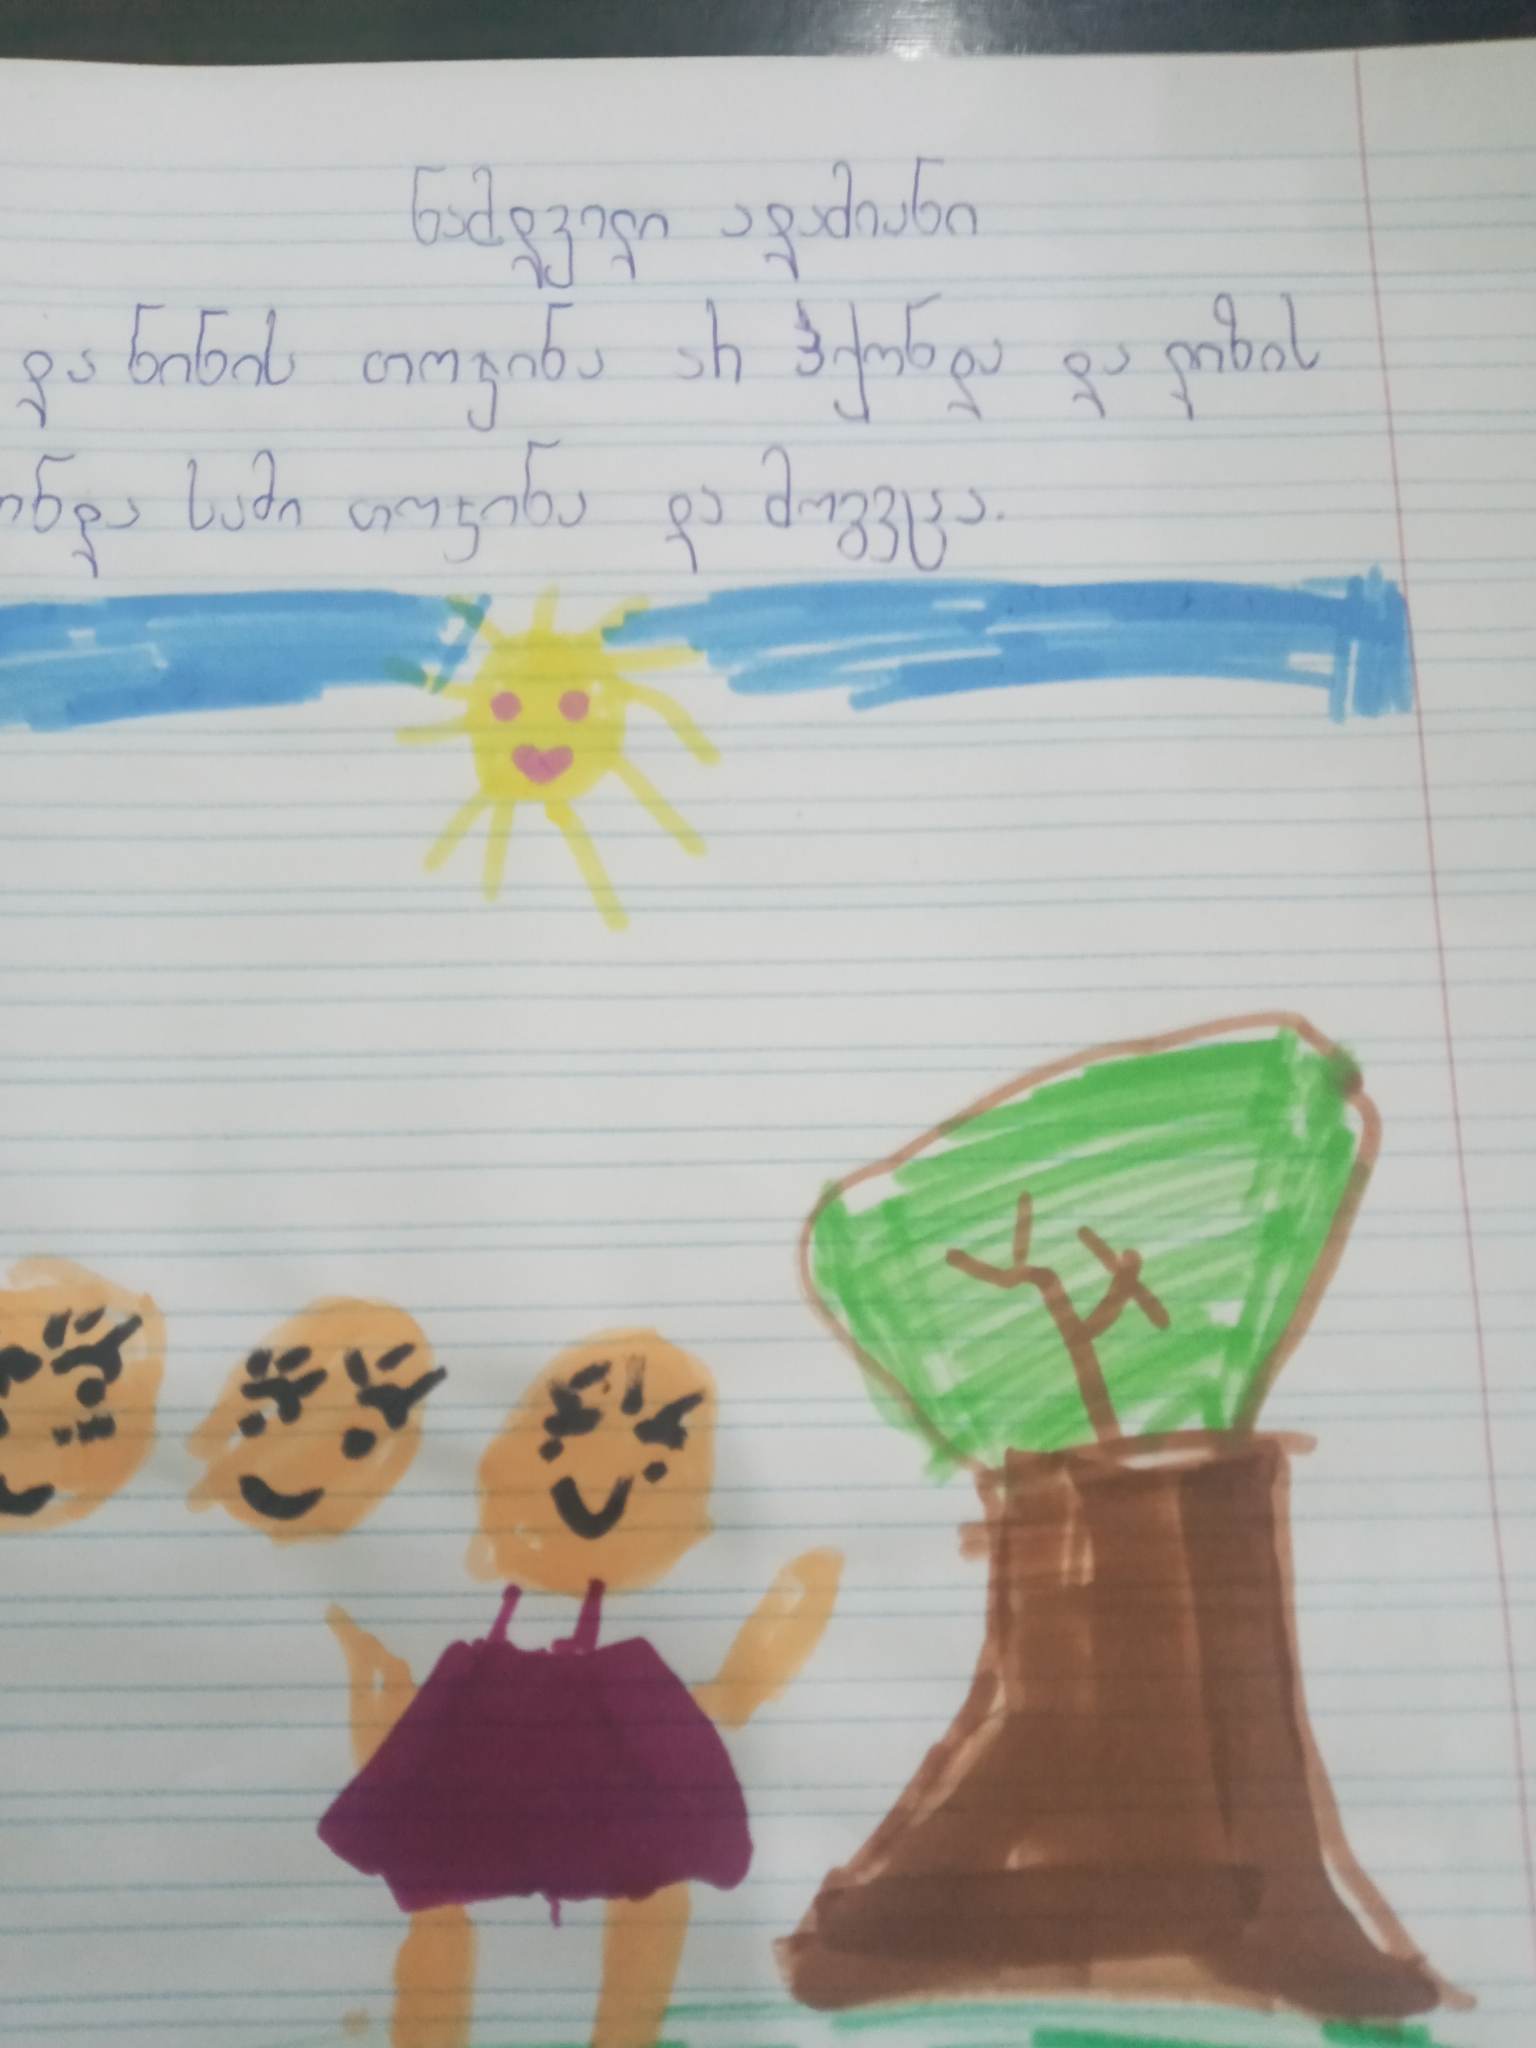 ნამდვილი ადამიანი
და ნინის თოჯინა არ ჰქონდა და ლიზის
ონდა სამი თოჯინა და მოგვცა.